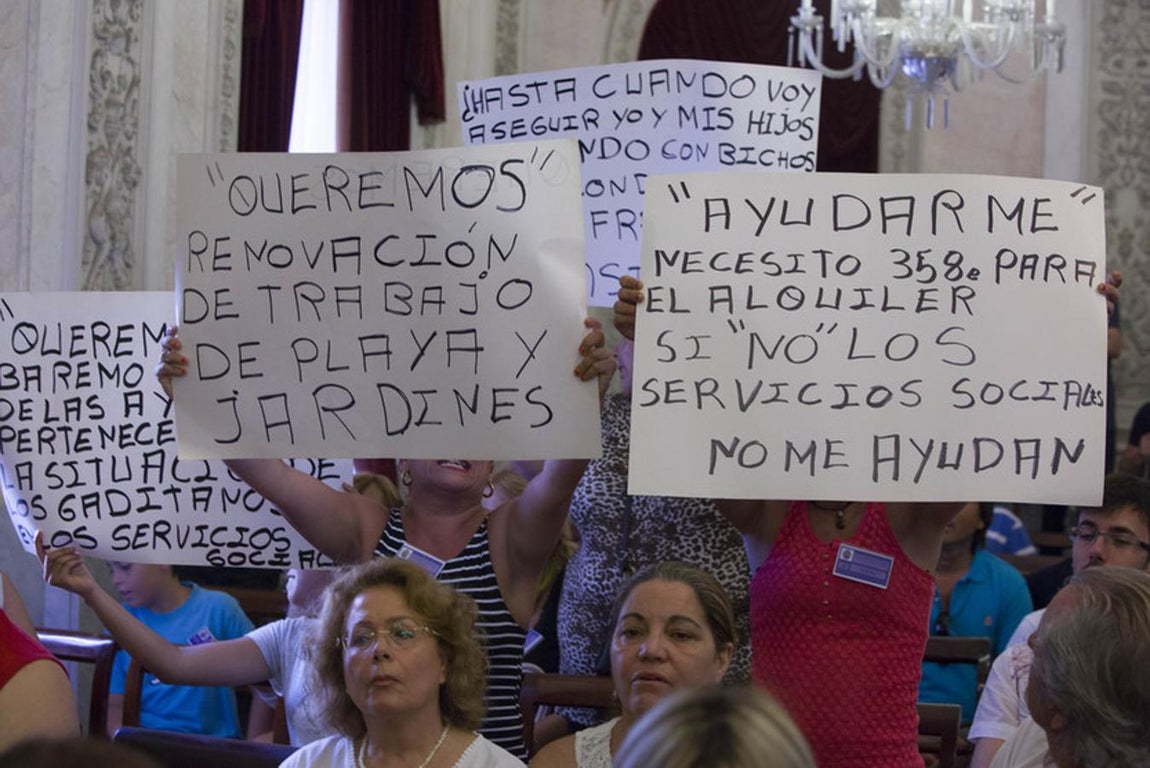 ¿HASTA CUANDO VOY
ASEGUIR YO Y MIS HIJOS
CON BICHOS
"QUEREMOS"
RENOVACIÓN
DE TRABAJO
DE PLAYA Y
JARDINES
"AYUDARME"
NECESITO 358e PARA
EL ALQUILER
SI "NO" LOS
SERVICIOS SOCIALES
NO ME AYUDAN
"QUEREM
BAREMO
DE LAS AY
PERTENECE
LA SITUACI DE
LOS GADITANOS
LOS SERVICIOS
SOCIAL